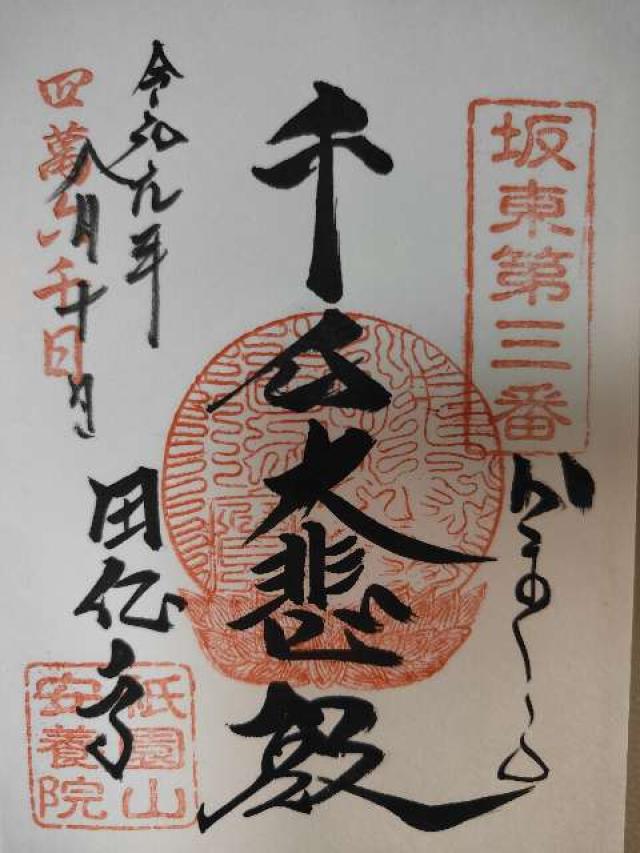 坂東第三番
かまくら
千手大悲殿
令和元年
八月十日
四萬六千日
田代寺
祇園山
安養院